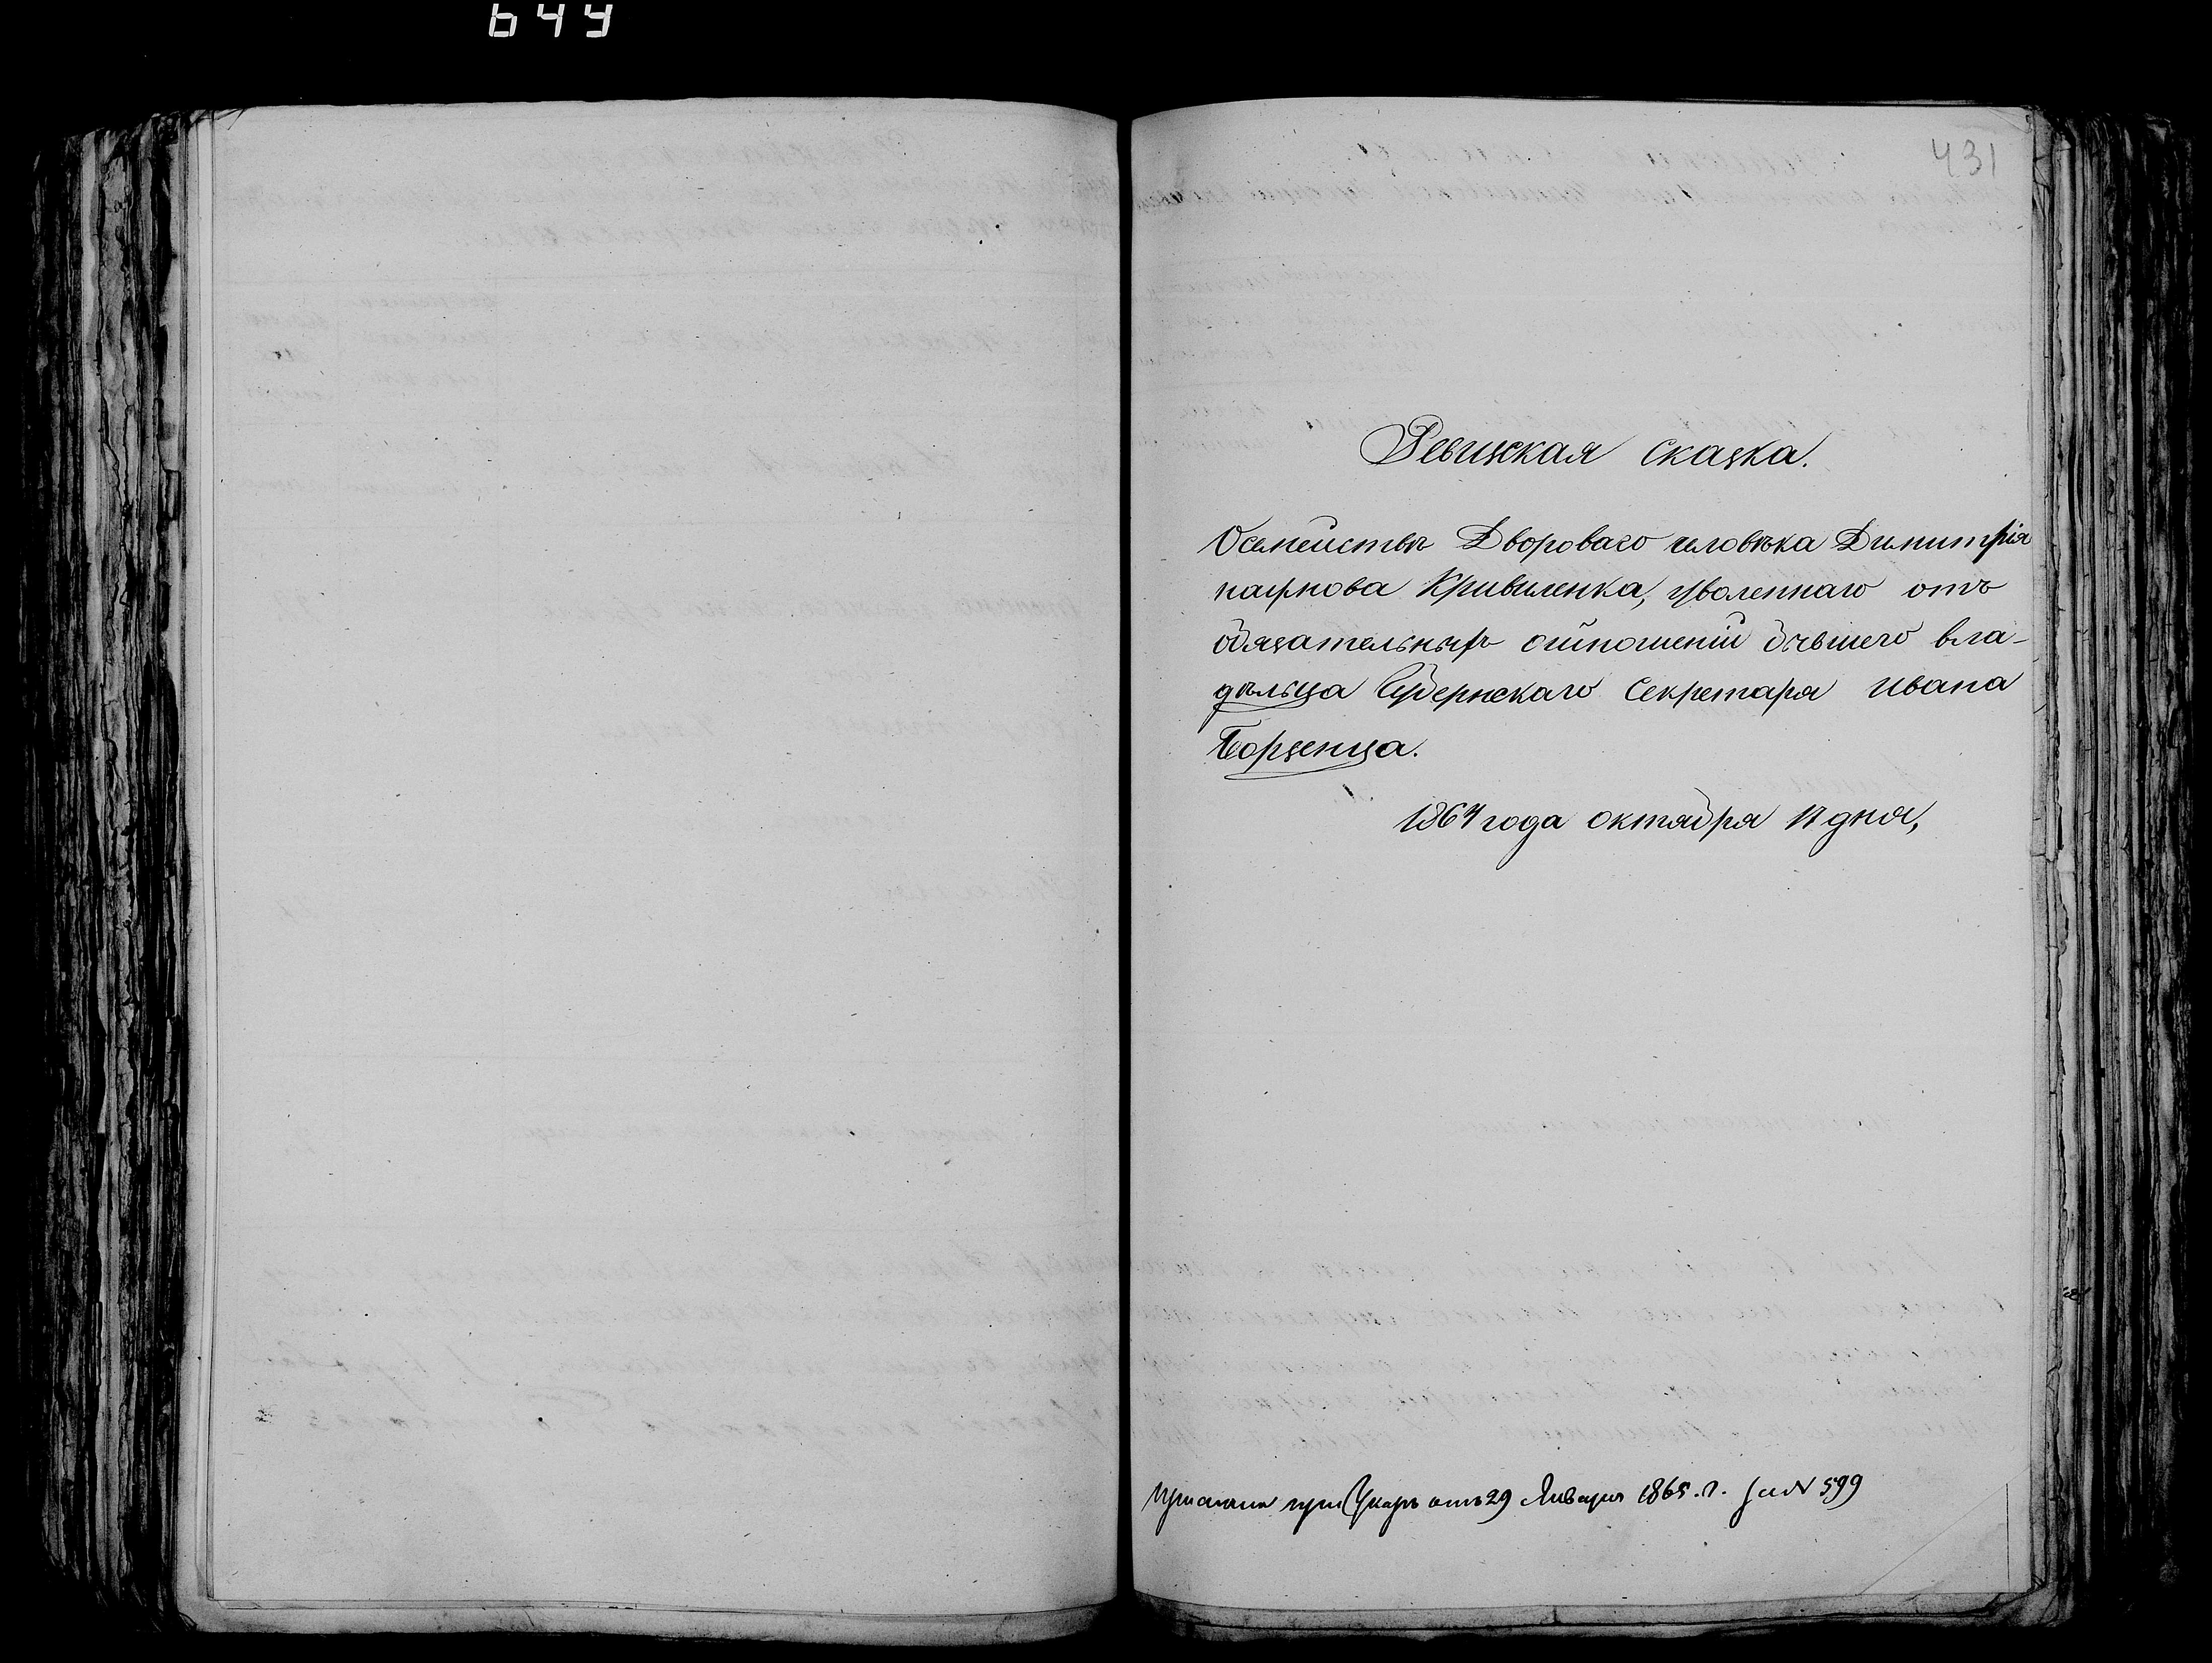 649
431
Ревизская сказка.
О семействе Двороваго человѣка Димитрія
Кривиленка, уволеннаго отъ
обязательныхъ отношеній бывшего вла-
дѣльца Губернскаго Секретаря Ивана
Борзенца.
1864 года октября 17 дня,
при Указѣ отъ 29 Января 1865. г. за N 599